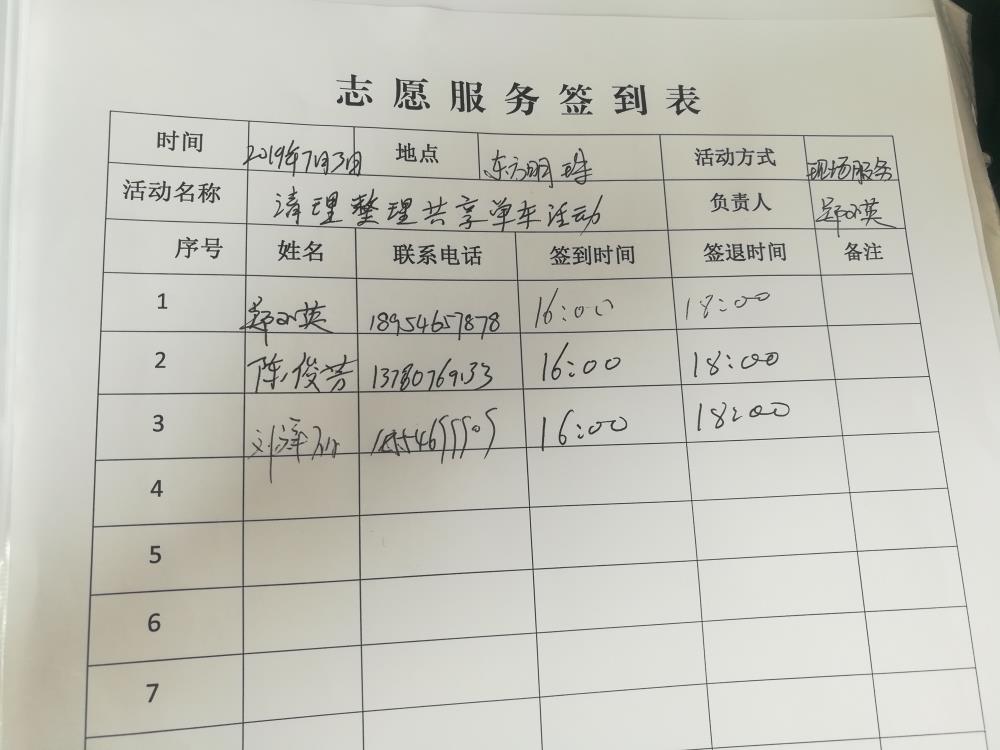 志愿服务签到表
时间 2019年7月3日 地点 东方明珠 活动方式 现场服务
活动名称 清理整理共享单车活动 负责人 郑小英
序号 姓名 联系电话 签到时间 签退时间 备注
1 郑小英 18954657878 16:00 18:00
2 陈俊芳 13780769133 16:00 18:00
3 刘 16:00 18:00
4
5
6
7